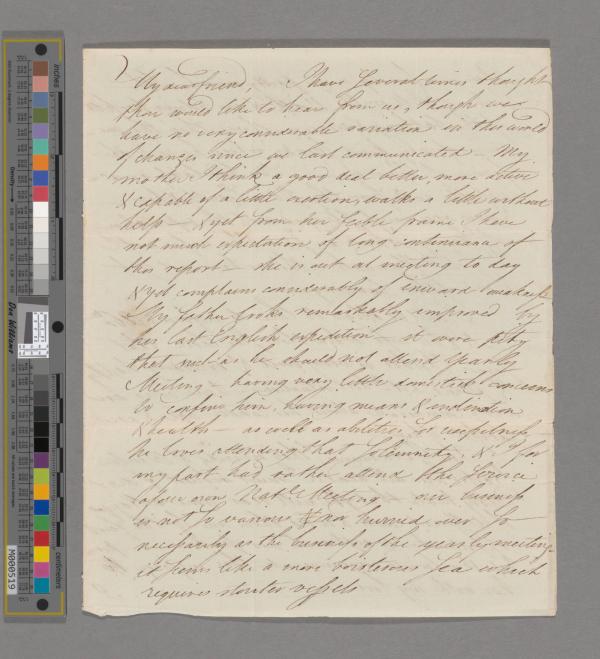 My dear friend, I have several times thought
thou would like to hear from us, though we
have no very considerable variation in this world
of changes since we last communicated – My
mother I think a good deal better, more active
& capable of a little exertion, walks a little without
help – & yet from her feeble frame I have
not much expectation of long continuance of
this report – she is out at meeting to day
& yet complains considerably of inward weakness
My father looks remarkably improved by
his last English expedition – it were pity
that such as he should not attend Yearly
Meeting – having very little domestick concerns
to confine him, having means & inclination
& health – as well as abilities for usefulness
he loves attending that solemnity, & for
my part had rather attend the service
of our own Nat. Meeting – our business
is not so various & nor hurried over so
necessarily as the business of the yearly meeting
it seems like a more boisterous sea which
requires stouter vessels
inches
centimetres
Don Williams
M000519